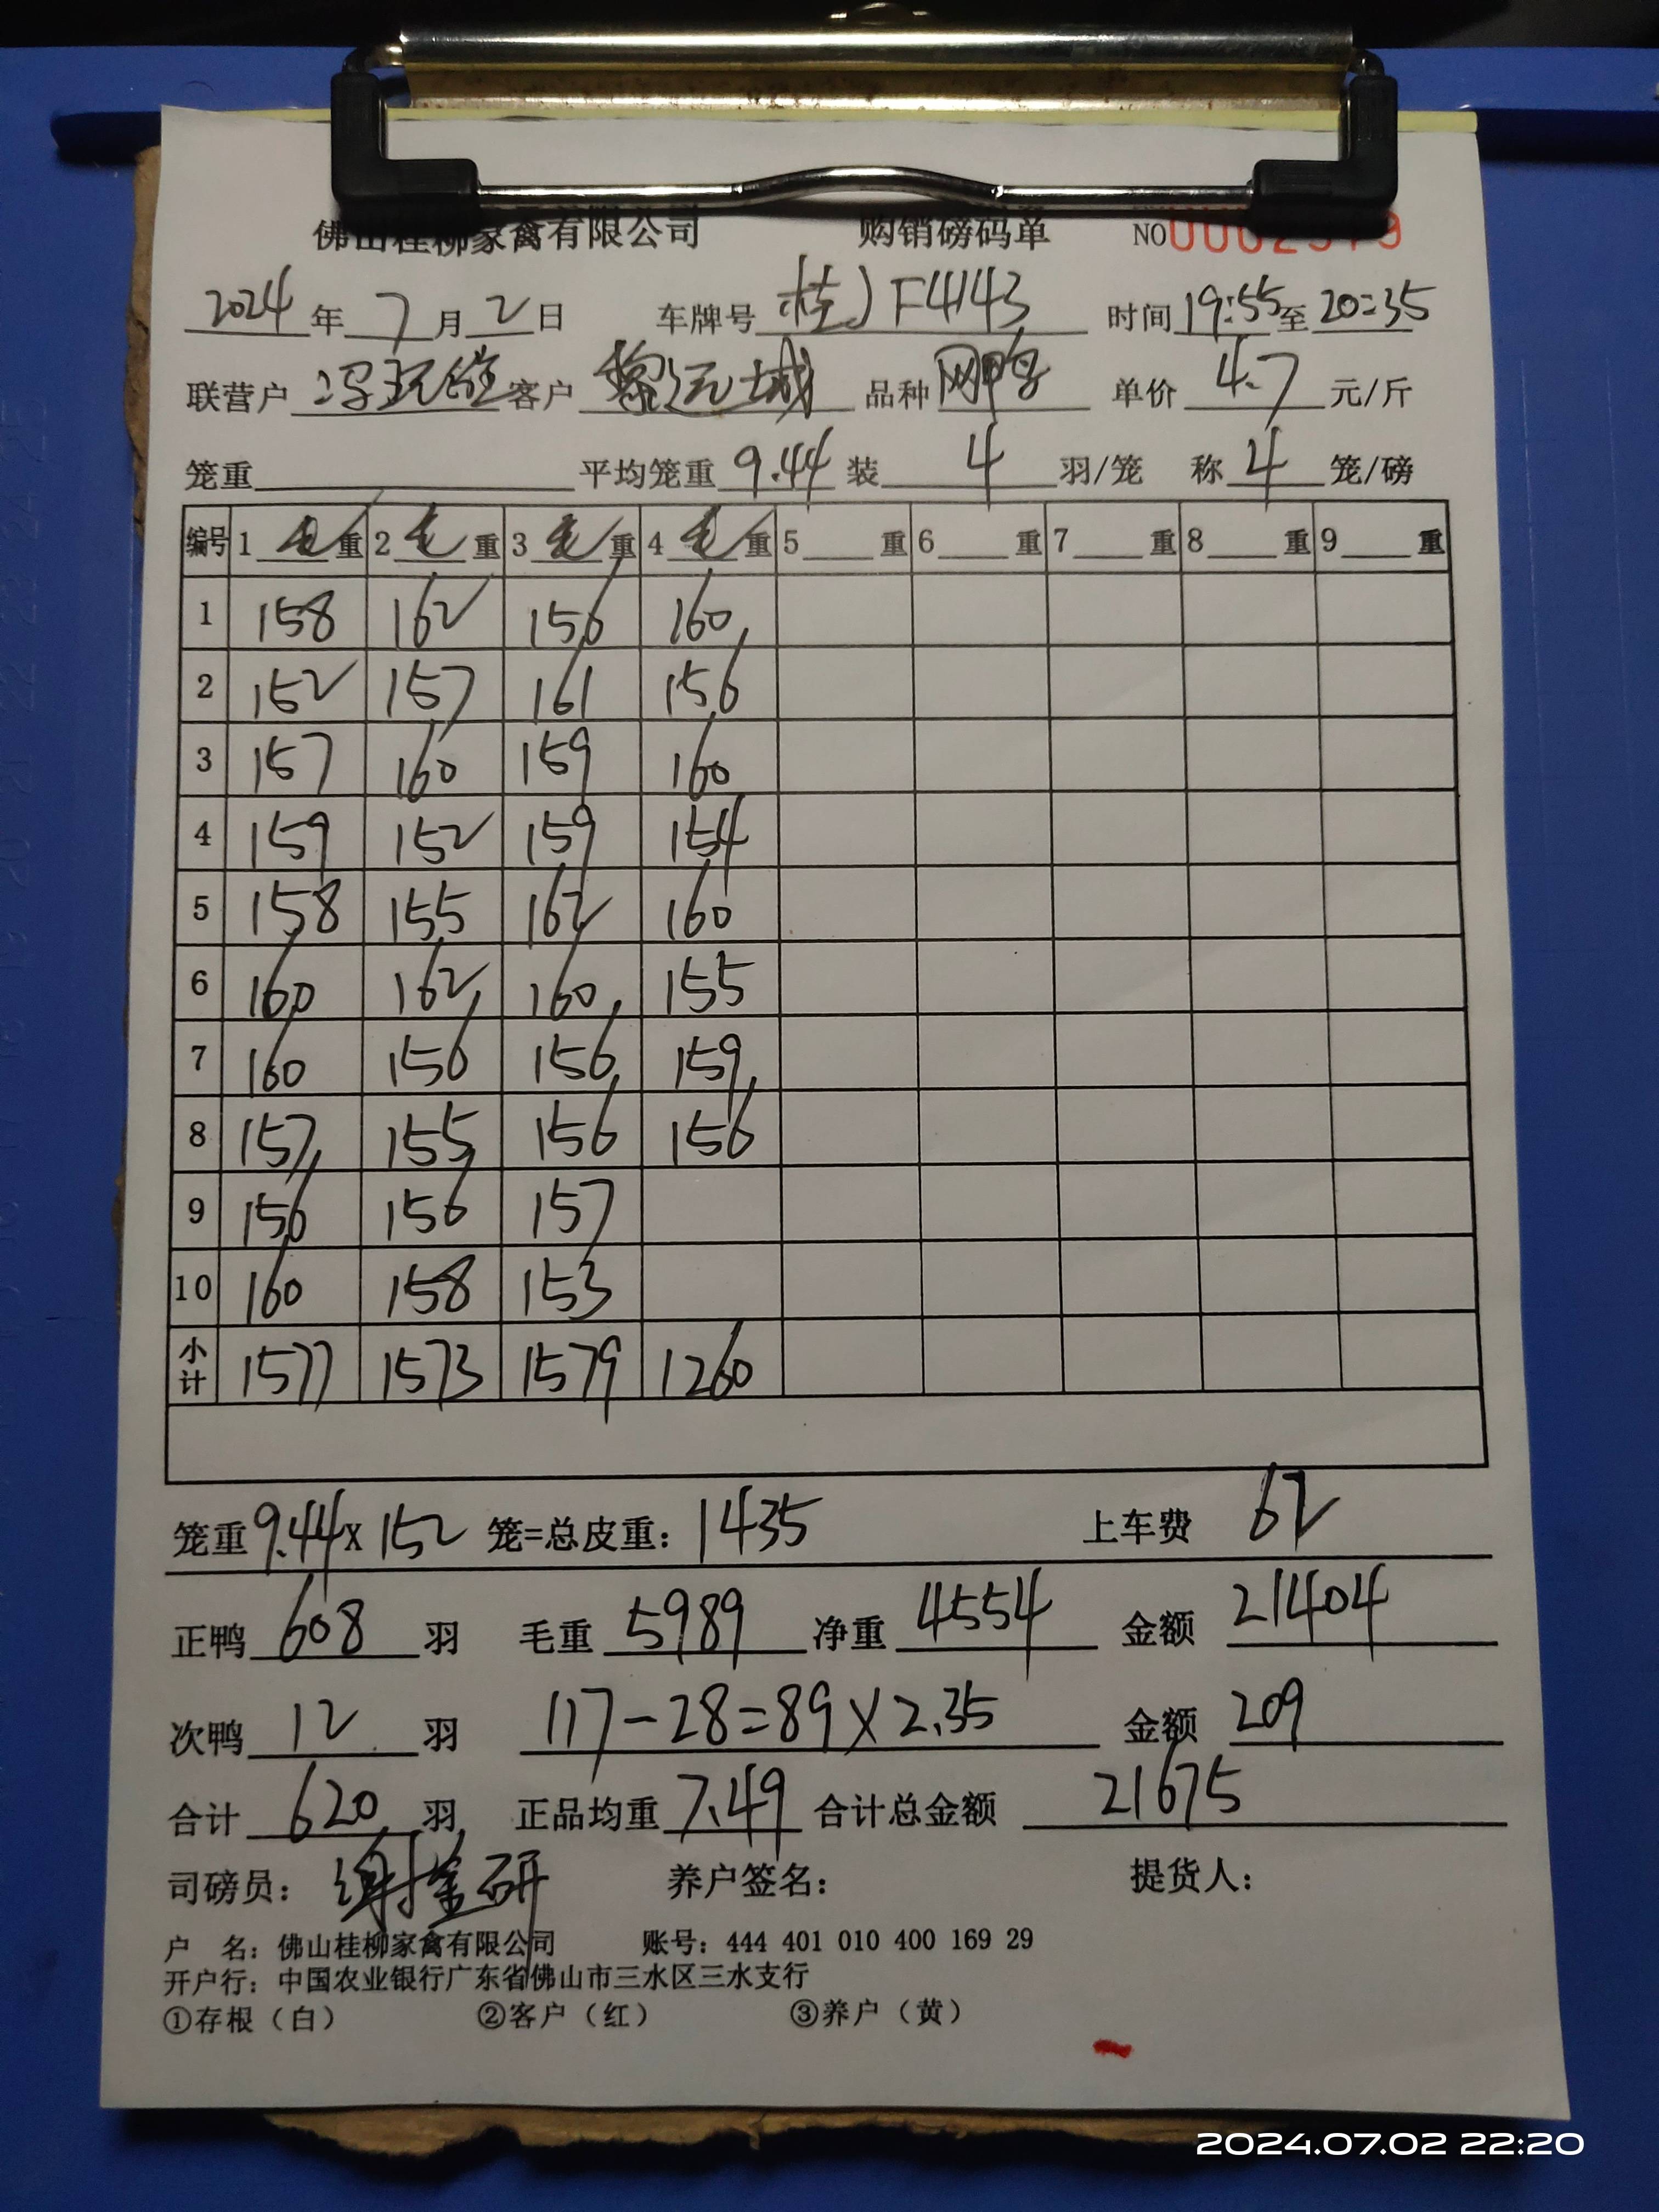 佛山桂柳家禽有限公司 购销磅码单 NO 0002579
2024年7月2日 车牌号 桂J F4143 时间 19:55至20:35
联营户 客户 黎远城 品种 网鸭 单价 4.7 元/斤
笼重 平均笼重 9.44 装 4 羽/笼 称 4 笼/磅
编号 1 毛 重 2 毛 重 3 毛 重 4 毛 重 5 重 6 重 7 重 8 重 9 重
1 158 162 156 160
2 152 157 161 156
3 157 160 159 160
4 159 152 159 154
5 158 155 162 160
6 160 162 160 155
7 160 156 156 159
8 157 155 156 156
9 156 156 157
10 160 158 153
小计 1577 1573 1579 1260
笼重 9.44 X 152 笼=总皮重: 1435 上车费 62
正鸭 608 羽 毛重 5989 净重 4554 金额 21404
次鸭 12 羽 117-28=89X2.35 金额 209
合计 620 羽 正品均重 7.49 合计总金额 21675
司磅员: 谢金研 养户签名: 提货人:
户 名: 佛山桂柳家禽有限公司 账号: 444 401 010 400 169 29
开户行: 中国农业银行广东省佛山市三水区三水支行
①存根（白） ②客户（红） ③养户（黄）
2024.07.02 22:20